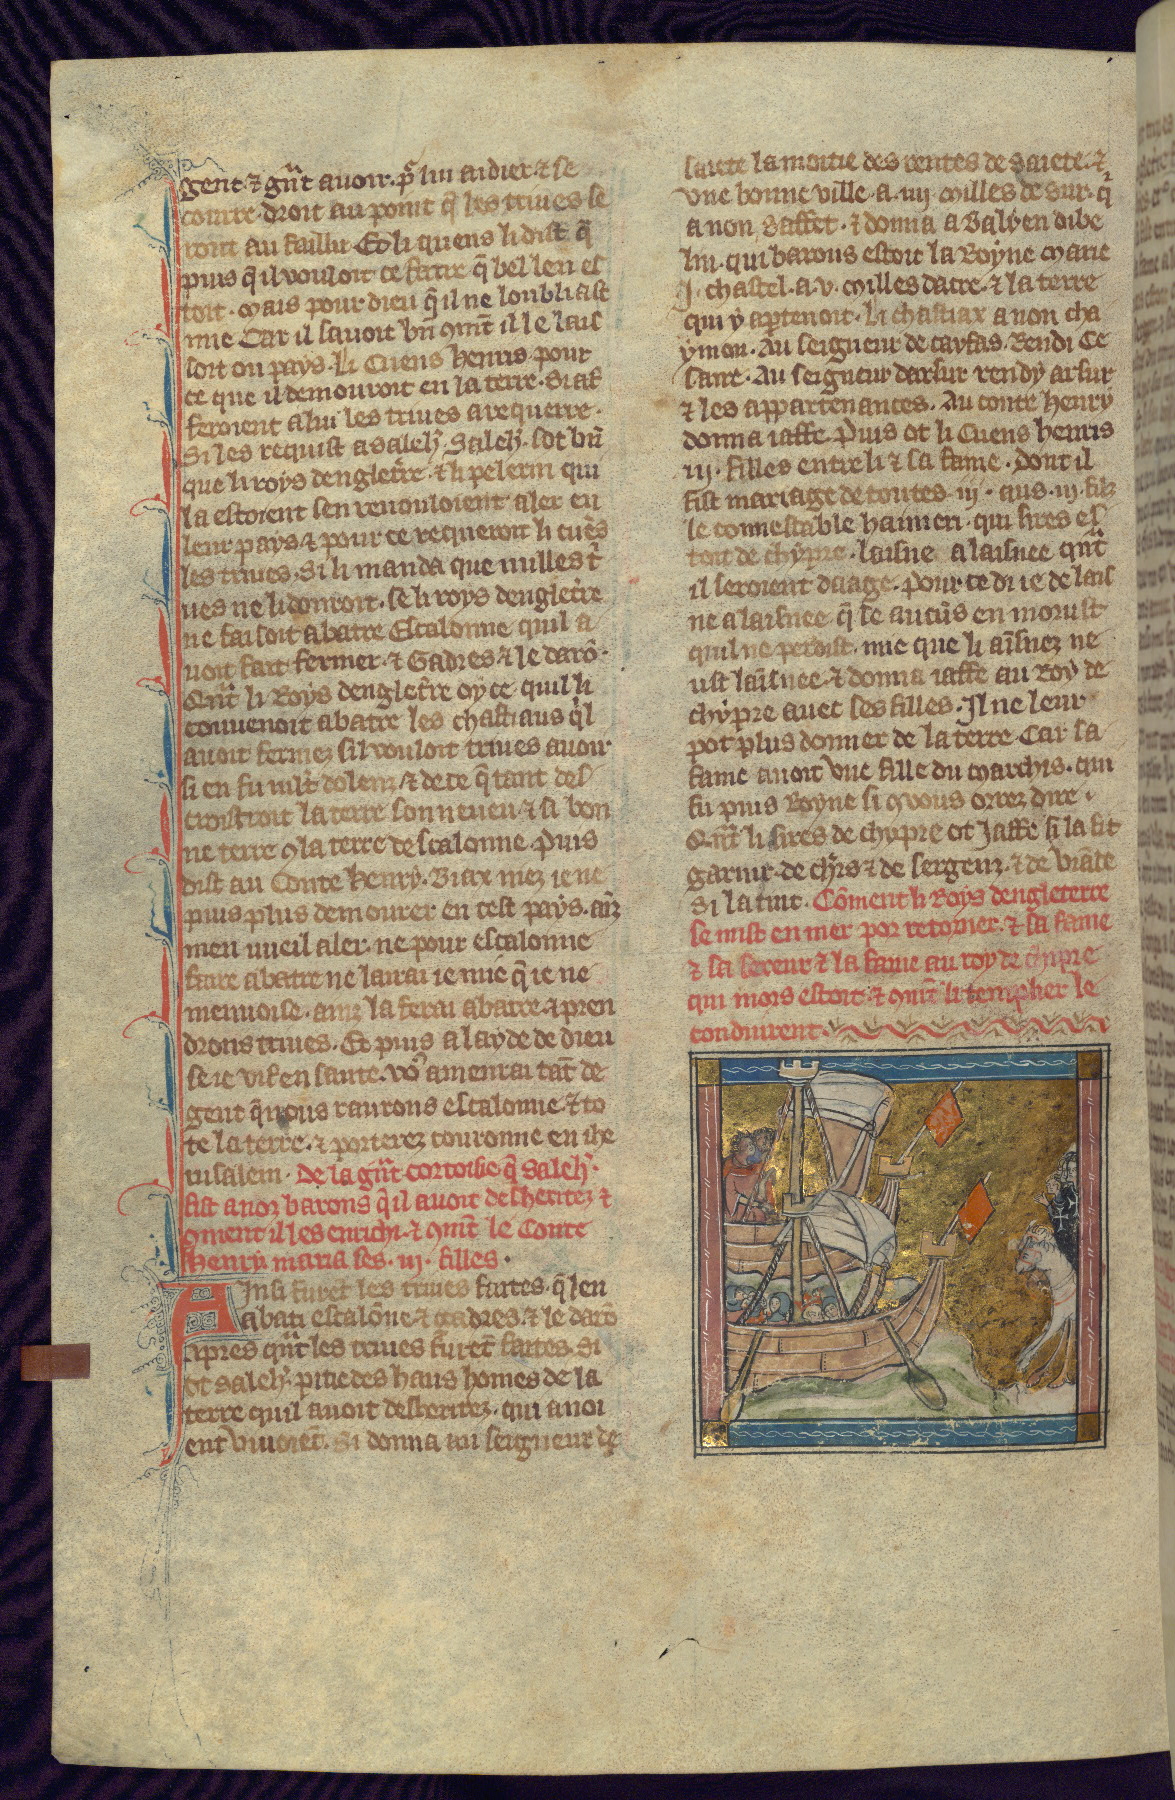 gent ⁊ gͣnt auoir. p̄ lui aidier ⁊ se
courre. droit au point q̄ les triues se
roient au faillir. Et li quens li dist q̄
puis q̄ il vouloit ce faire q̄ bel len es
toit. Mais pour dieu q̄ il ne loubliast
mie Car il sauoit bn̄ 9mēt il le lais
soit ou pays. Li Cuens henris pour
ce que il demouroit en la terre. Si af
feroient a lui les triues a requerre.
Si les requist a salehȷ̄. Salehȷ̄. sot bn̄
que li roys denglet̄re. ⁊ li pelerin qui
la estoient sen vouloient aler en
leur pays ⁊ pour ce requeroit li cuēs
les triues. Si li manda que nulles t̄
ues ne li donroit. se li roys denglet̄re
ne faisoit abatre Escalonne quil a
uoit fait fermer. ⁊ Gadres ⁊ le darō.
Qn̄t li Roys denglet̄re oy ce quil li
couuenoit abatre les chastiaus q̄l
auoit fermez sil vouloit triues auoir
si en fu mlt̄ dolenz. ⁊ de ce q̄ tant des
croistroit la terre son neueu. ⁊ si bon
ne terre 9 la terre descalonne. Puis
dist au Conte henry. Biax niez ie ne
puis plus demourer en cest pays. aīz
men vueil aler. ne pour escalonne
faire abatre ne lairai ie mie q̄ ie ne
menuoise. ainz la ferai abatre. ⁊ pren
drons triues. Et puis a layde de dieu
se ie vif en sante. vo9 amenrai tāt de
gent q̄ nous raurons escalonne. ⁊ to
te la terre. ⁊ porterez couronne en ihe
rusalem. De la gͣnt cortoisie q̄ Salehȷ̄.
fist a noz barons q̄ il auoit desheritez ⁊
9ment il les enrichi. ⁊ 9mēt le Conte
henry maria ses .iij. filles.
Ainsi furēt les triues faites. q̄ len
abati escalōne ⁊ gadres. ⁊ le darō
Apres qn̄t les triues furēt faites. Si
ot Salehȷ̄. pitie des haus homes de la
terre quil auoit desheritez. qui anoi
ent viuoiēt. Si donna au seigneur de
saiete la moitie des rentes de Saiete. ⁊
vne bonne ville .a .iiij. milles de Sur. q̄
a non Saffet. ⁊ donna a Balyen dibe
lin. qui barons estoit la Royne Marie
.j. chastel .a .v. milles dacre. ⁊ la terre
qui y apertenoit. li chastiax a non cha
ymon. Au seigneur de cayfas. Rendi Ce
saire. Au seigneur darsur rendy arsur
⁊ les appartenances. Au conte henry
donna iaffe. Puis ot li Cuens henris
.iij. filles entre li ⁊ sa fame. dont il
fist mariage de toutes .iij. aus .iij. filz
le connestable haimeri. qui sires es
toit de chypre. laisne a laisnee qn̄t
il seroient daage. Pour ce di ie de lais
ne a laisnee q̄ se aucūs en morust
quil ne perdist. mie que li aisnez ne
ust laisnee. ⁊ donna iaffe au Roy de
chypre auec ses filles. Il ne leur
pot plus donner de la terre Car sa
fame auoit vne fille du marchis. qui
fu puis Royne si 9 vous orrez dire.
Qn̄t li sires de chypre ot Jaffe si la fit
garnir. de chr̄s ⁊ de sergenz. ⁊ de viāde
Si la tint. Cōment li Roys dengleterre
se mist en mer por retorner. ⁊ sa fame
⁊ sa sereur ⁊ la fame au roy de chipre
qui mors estoit. ⁊ 9mēt li templier le
conduirent.